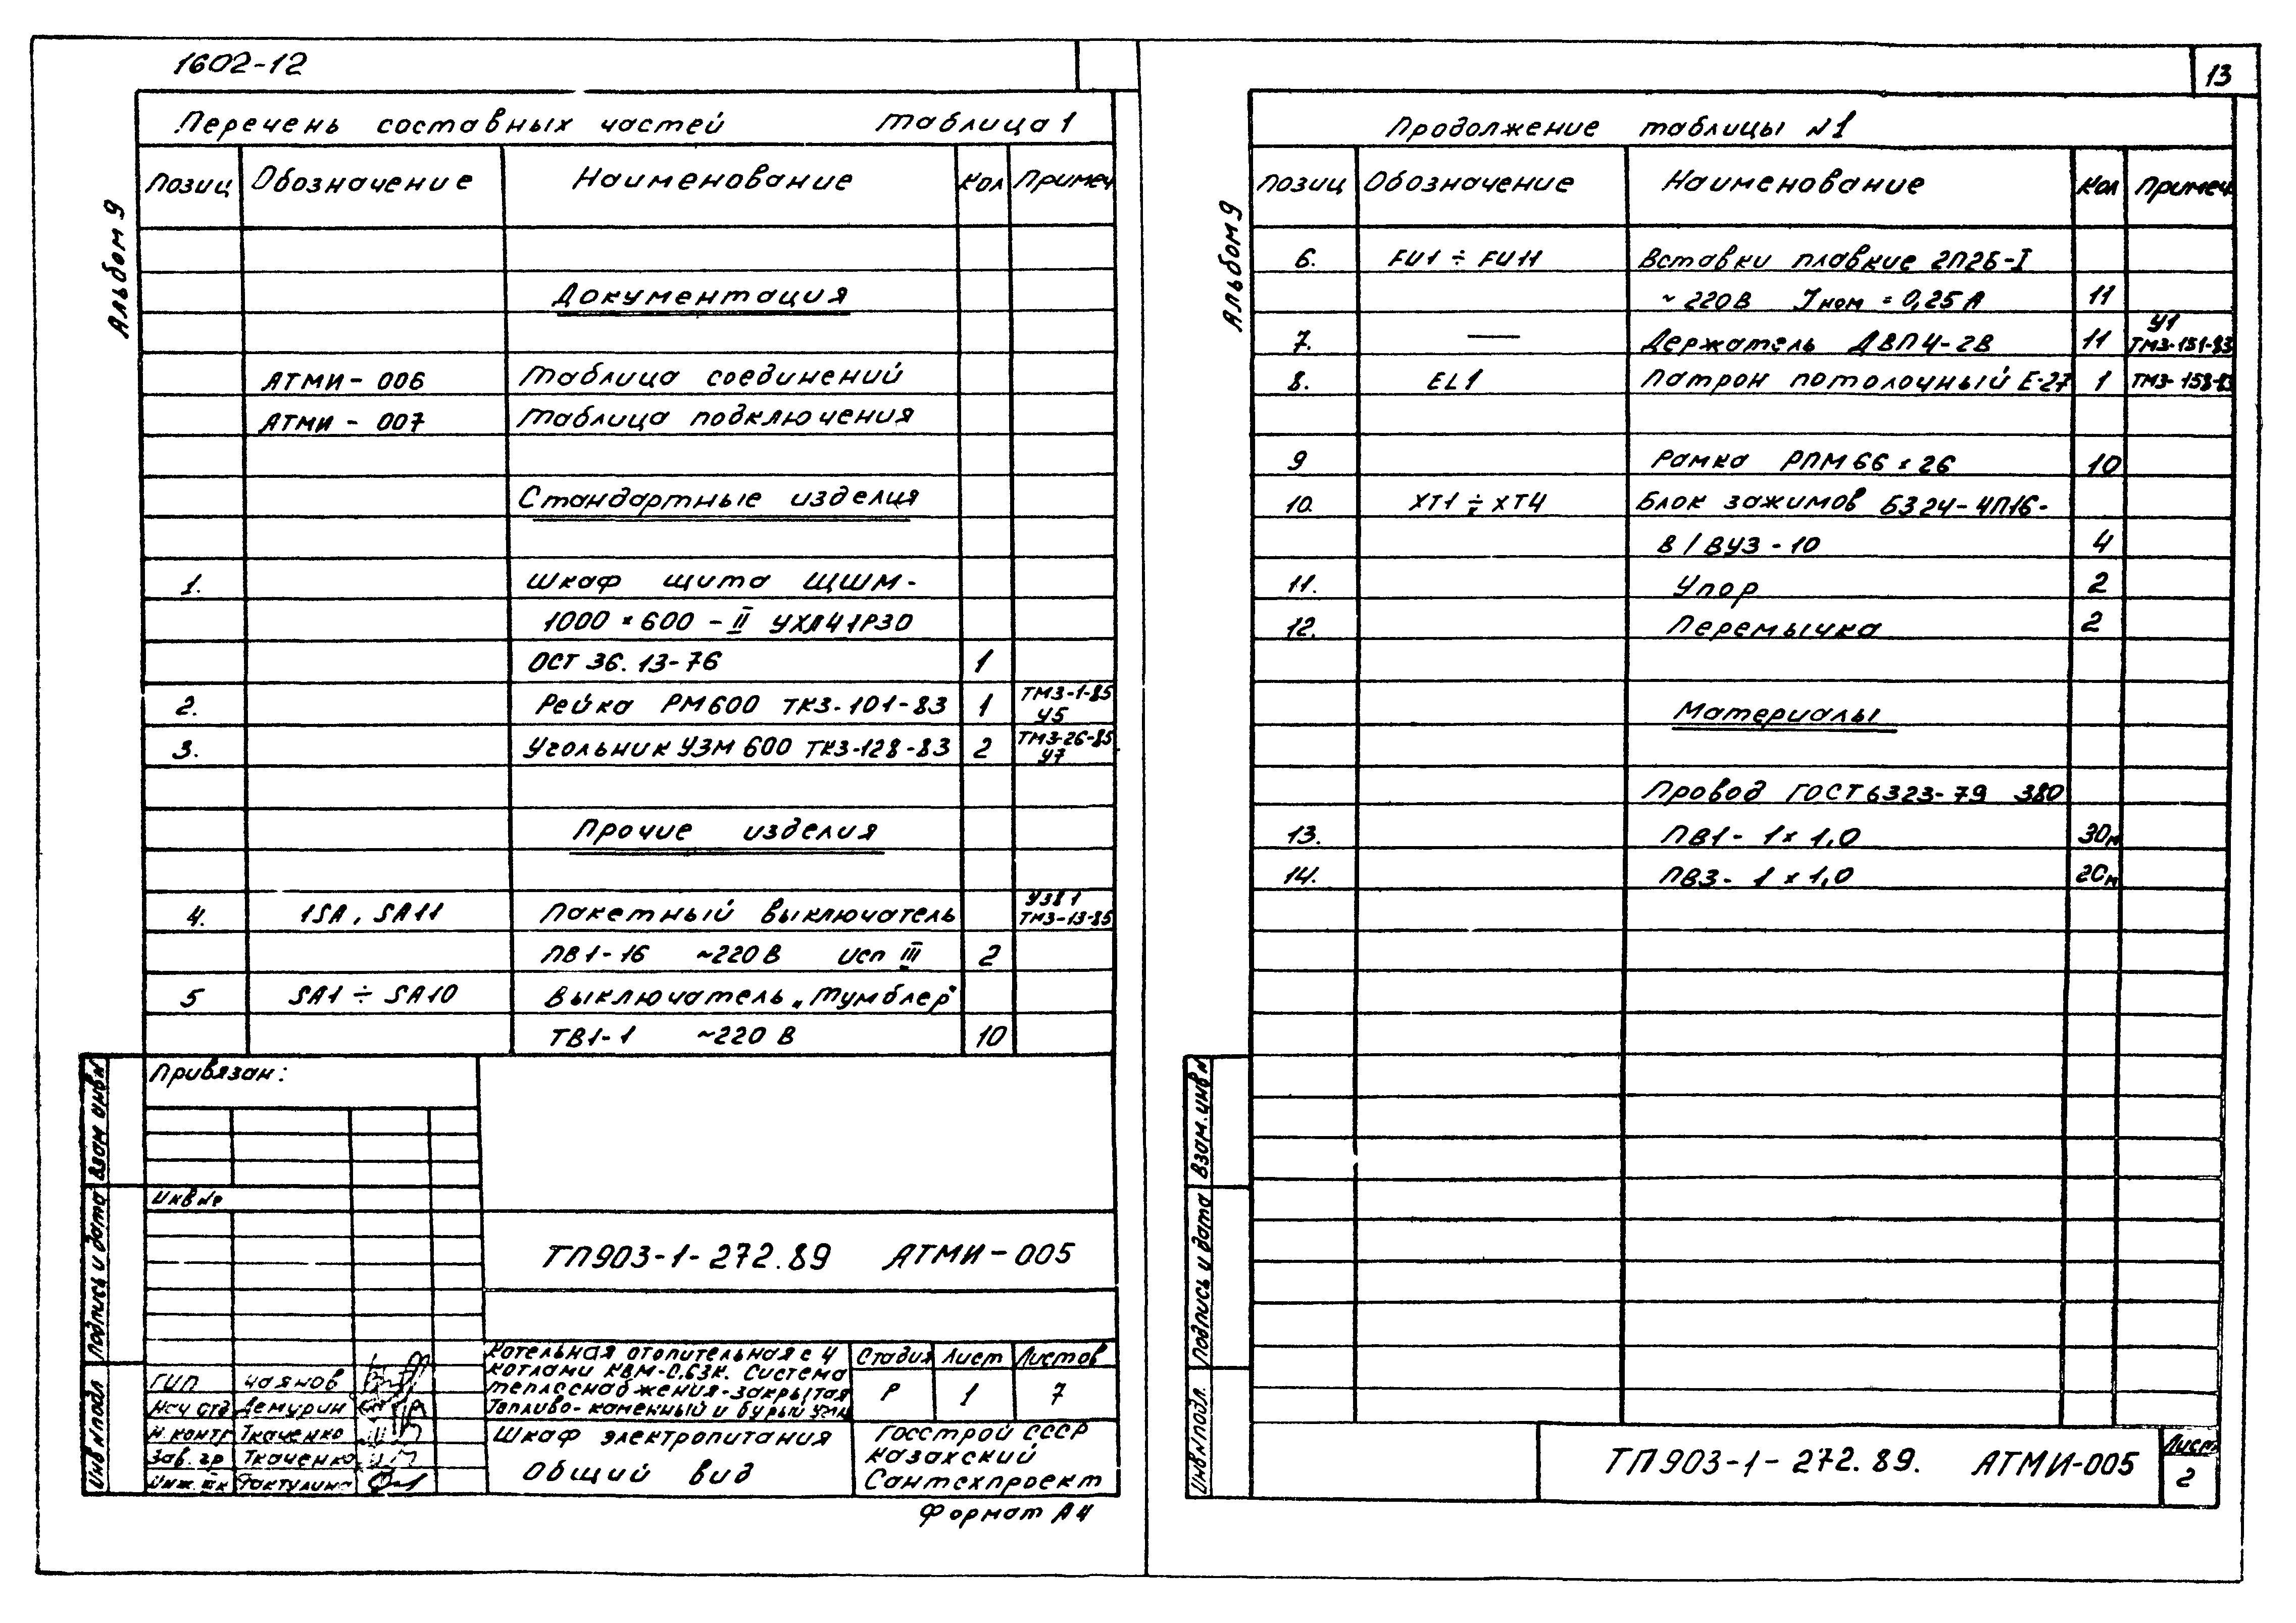 1602-12
Альбом 9
Перечень составных частей таблица 1
Позиц Обозначение Наименование Кол Примеч
Документация
АТМИ - 006 Таблица соединений
АТМИ - 007 Таблица подключения
Стандартные изделия
1. Шкаф щита ЩШМ-
1000 × 600 - II УХЛ41Р30
ОСТ 36.13-76 1
2. Рейка РМ600 ТК3-101-83 1 ТМ3-1-85 У5
3. Угольник УЗМ 600 ТК3-128-83 2 ТМ3-26-85 У7
Прочие изделия
4. 1SA, SA11 Пакетный выключатель У381 ТМ3-13-85
ПВ1-16 ~220 В исп III 2
5 SA1 ÷ SA10 Выключатель „Тумблер"
ТВ1-1 ~220 В 10
Привязан:
Инв №
ТП903-1-272.89 АТМИ-005
Котельная отопительная с 4
котлами КВМ-0,63К. Система
теплоснабжения-закрытая
Топливо-каменный и бурый
Стадия Лист Листов
Р 1 7
ГИП Чаянов
Нач отд Демурин
Н.контр Ткаченко
Зав.гр Ткаченко
Шкаф электропитания
Общий вид
Госстрой СССР
Казахский
Сантехпроект
Формат А4
Инв № подл Подпись и дата Взам инв №
13
Альбом 9
Продолжение таблицы №1
Позиц Обозначение Наименование Кол Примеч
6. FU1 ÷ FU11 Вставки плавкие 2П2Б-I
~ 220 В Iном = 0,25 А 11
7. — Держатель ДВП4-2В 11 У1 ТМ3-151-83
8. EL1 Патрон потолочный Е-27 1 ТМ3-158-83
9 Рамка РПМ 66 × 26 10
10. XT1 ÷ XT4 Блок зажимов Б324-4П16-
В / ВУ3 - 10 4
11. Упор 2
12. Перемычка 2
Материалы
Провод ГОСТ 6323-79 380
13. ПВ1 - 1 × 1,0 30м
14. ПВ3 - 1 × 1,0 20м
Инв № подл. Подпись и дата Взам. инв №
ТП903-1-272.89. АТМИ-005
Лист
2